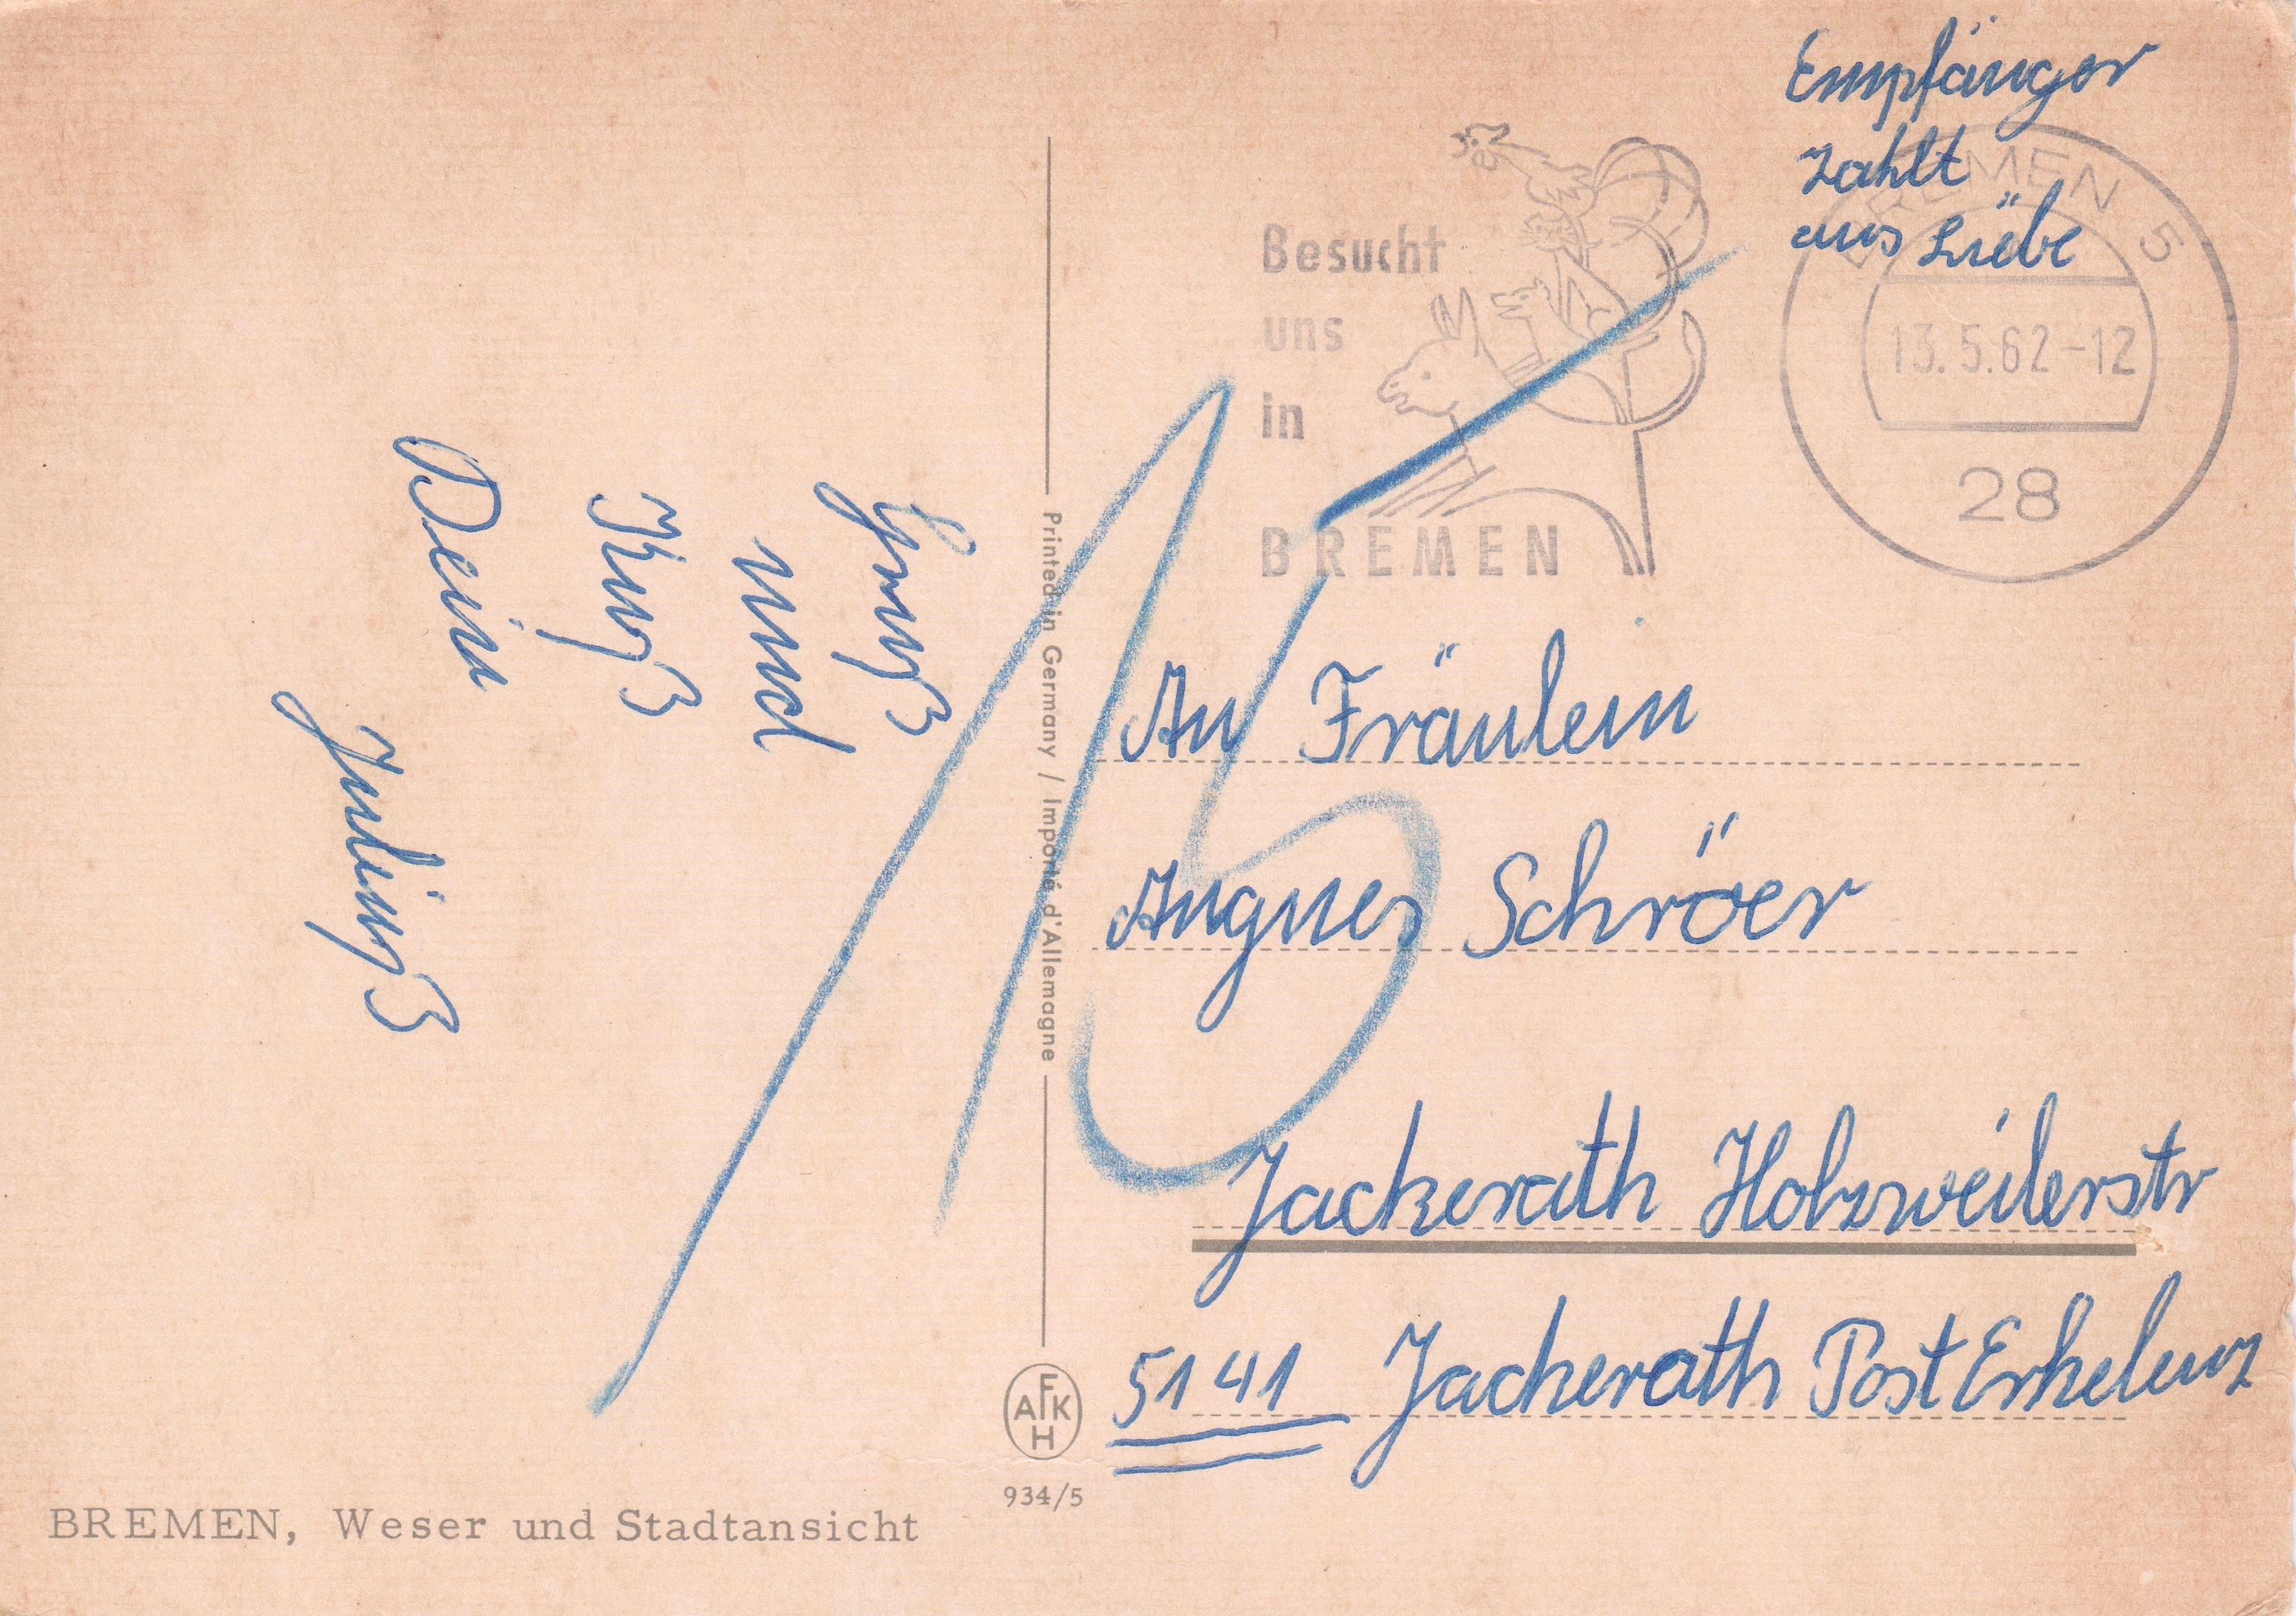 Gruß
und
Kuß
Dein
Juliuß
BREMEN, Weser und Stadtansicht
Printed in Germany / Importé d'Allemagne
AFKH
934/5
Empfänger
zahlt
aus Liebe
Besucht
uns
in
BREMEN
BREMEN 5
13.5.62-12
28
15
An Fräulein
Angnes Schröer
Jackerath Holzweilerstr
5141 Jackerath Post Erkelenz